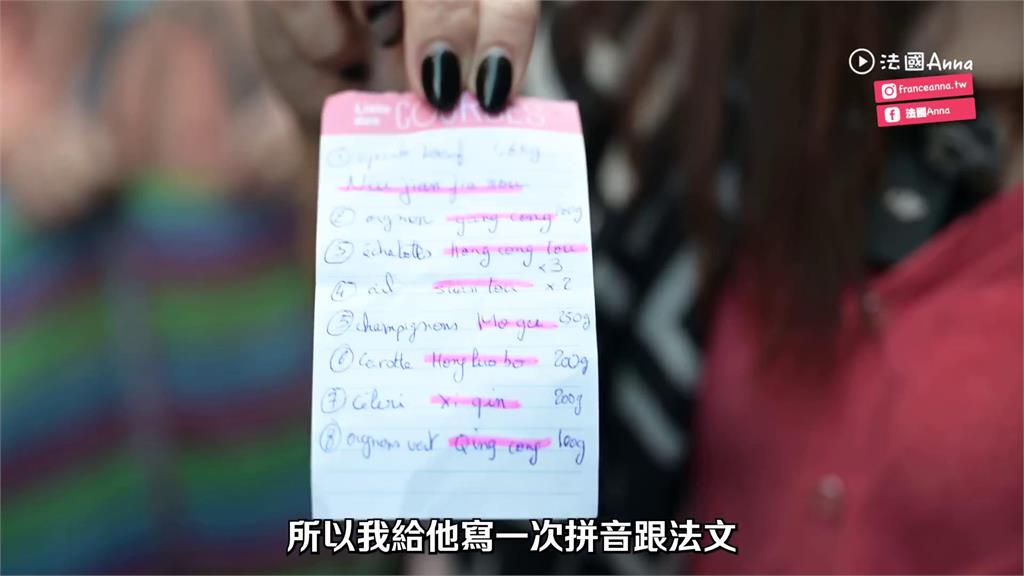 法國Anna
franceanna.tw
法國Anna
Liste des COURSES
① boeuf 1,6kg
Niu jian jia rou
② oignon yang cong 200g
③ échalottes Hong cong tou
x3
④ ail suan tou x2
⑤ champignons Mo gu 250g
⑥ Carotte Hong luo bo 200g
⑦ Céleri xi qin 200g
⑧ oignons vert Qing cong 100g
所以我給他寫一次拼音跟法文